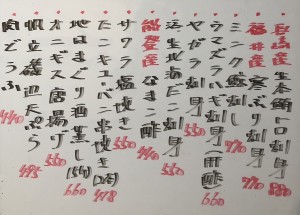 長崎産生本鮪トロ刺身 880
福井産寒ぶり刺身 770
ミンク鯨刺し 770
ウマヅラハギ刺身肝醋 660
ヤガラ刺身 550
活生北寄たこ刺身 550
能登産なまこ酢 440
サクラ塩焼き 550
たこキューべー串焼き(2本) 418
地はまぐり酒蒸し(5ヶ) 660
オニギス唐揚げ
帆立磯辺天ぷら 495
肉どうふ 440